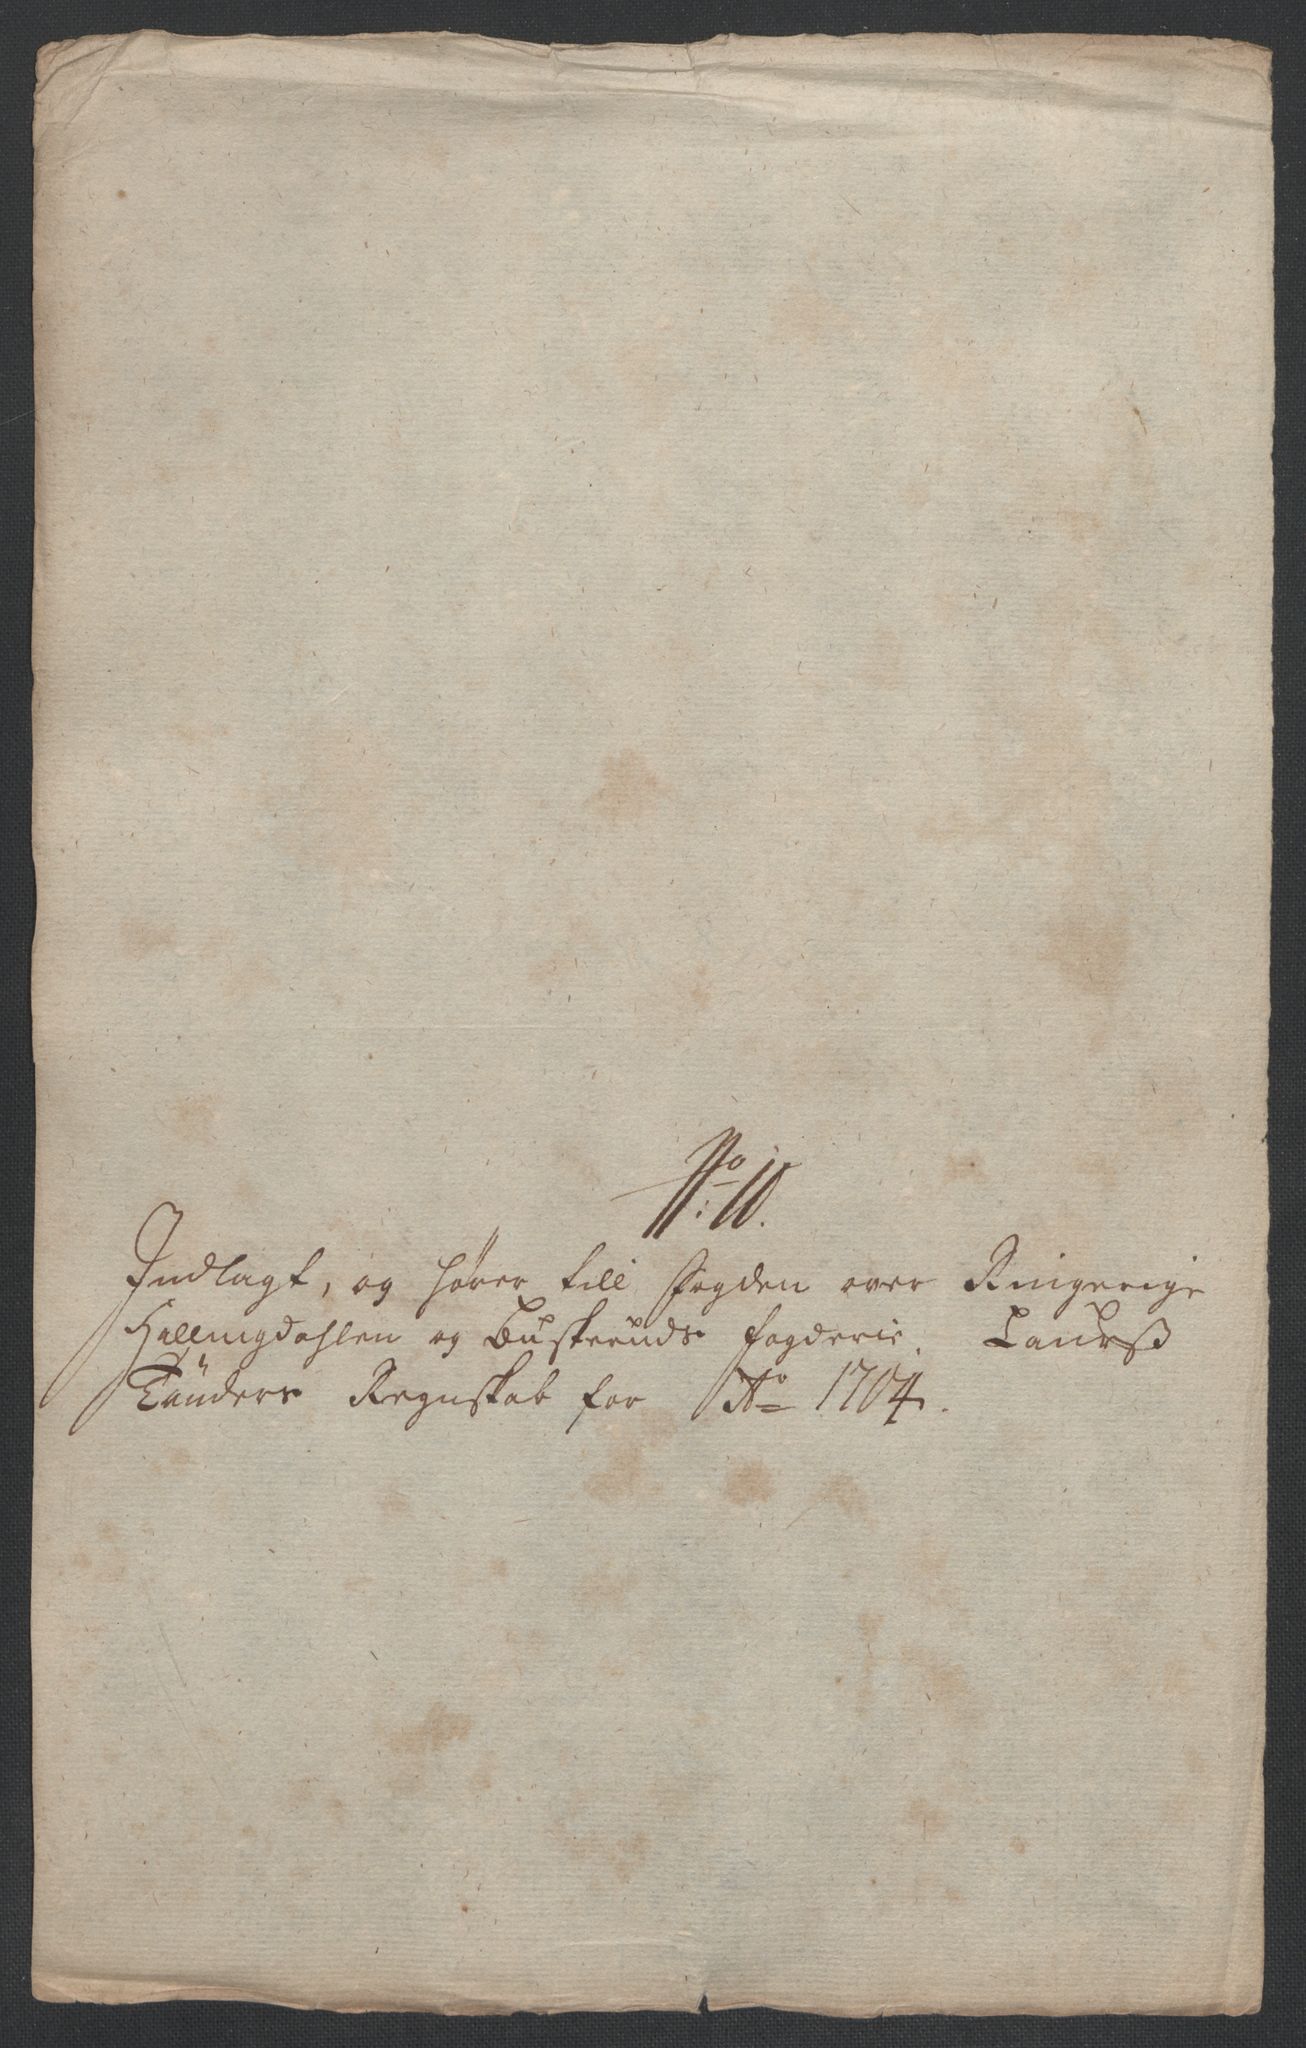 No: 10.
Indlagt, og hører till Fogden over Ringerige
Hallingdahlen og Buskeruds fogderie. Laurß
Tünders Regnskab for Ao 1704.